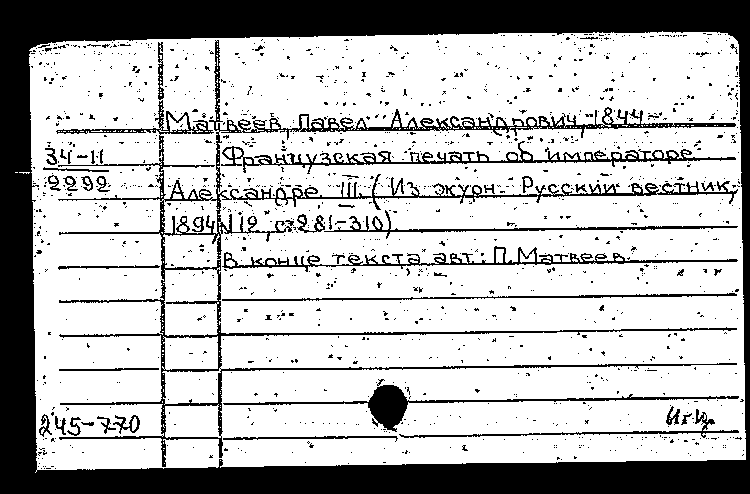 Матвеев, Павел Александрович, 1844-
34-11
2292
Французская печать об императоре
Александре III. (Из журн. Русский вестник,
1894, №12, с. 281-310).
В конце текста авт.: П. Матвеев.
245-770